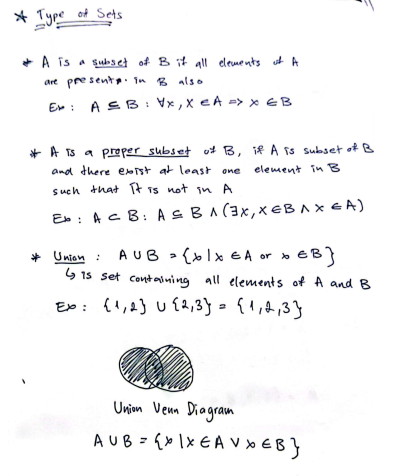 * Type of Sets
* A is a subset of B if all elements of A
are present in B also
Ex: A ⊆ B : ∀x, x ∈ A => x ∈ B
* A is a proper subset of B, if A is subset of B
and there exist at least one element in B
such that it is not in A
Ex: A ⊂ B: A ⊆ B ∧ (∃x, x ∈ B ∧ x ∈ A)
* Union : A ∪ B = {x | x ∈ A or x ∈ B}
↳ is set containing all elements of A and B
Ex: {1,2} ∪ {2,3} = {1,2,3}
Union Venn Diagram
A ∪ B = {x | x ∈ A ∨ x ∈ B}